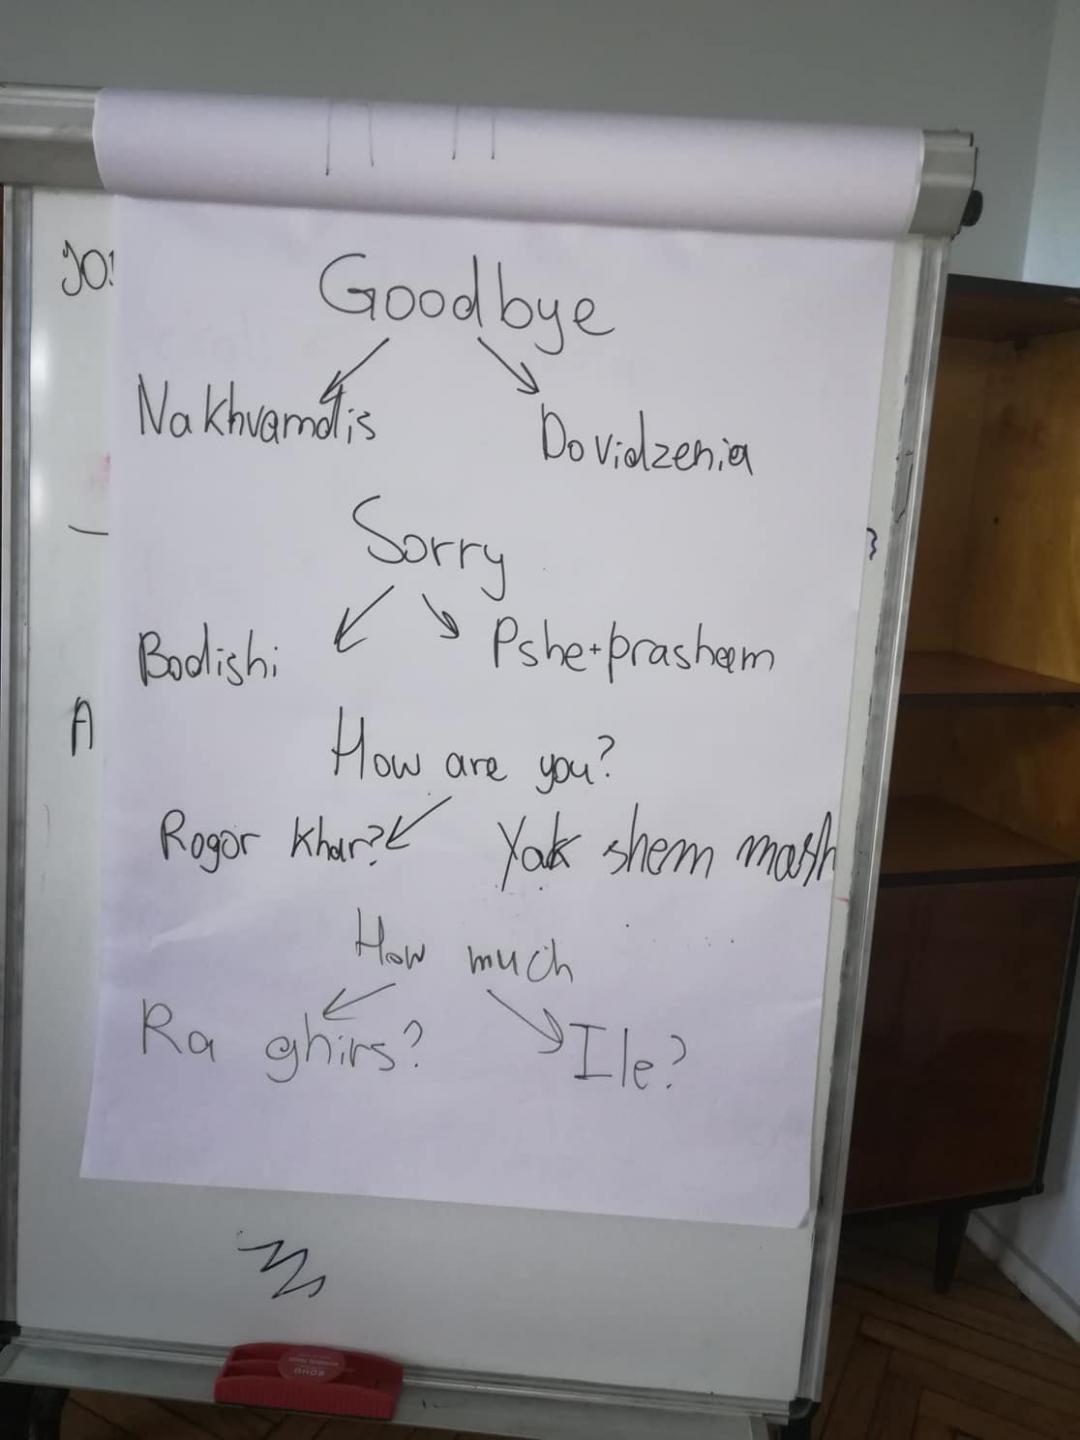 Goodbye
Nakhvamdis Dovidzenia
Sorry
Bodishi Pshe+prashem
How are you?
Rogor Khar? Yak shem mash
How much
Ra ghirs? Ile?
A